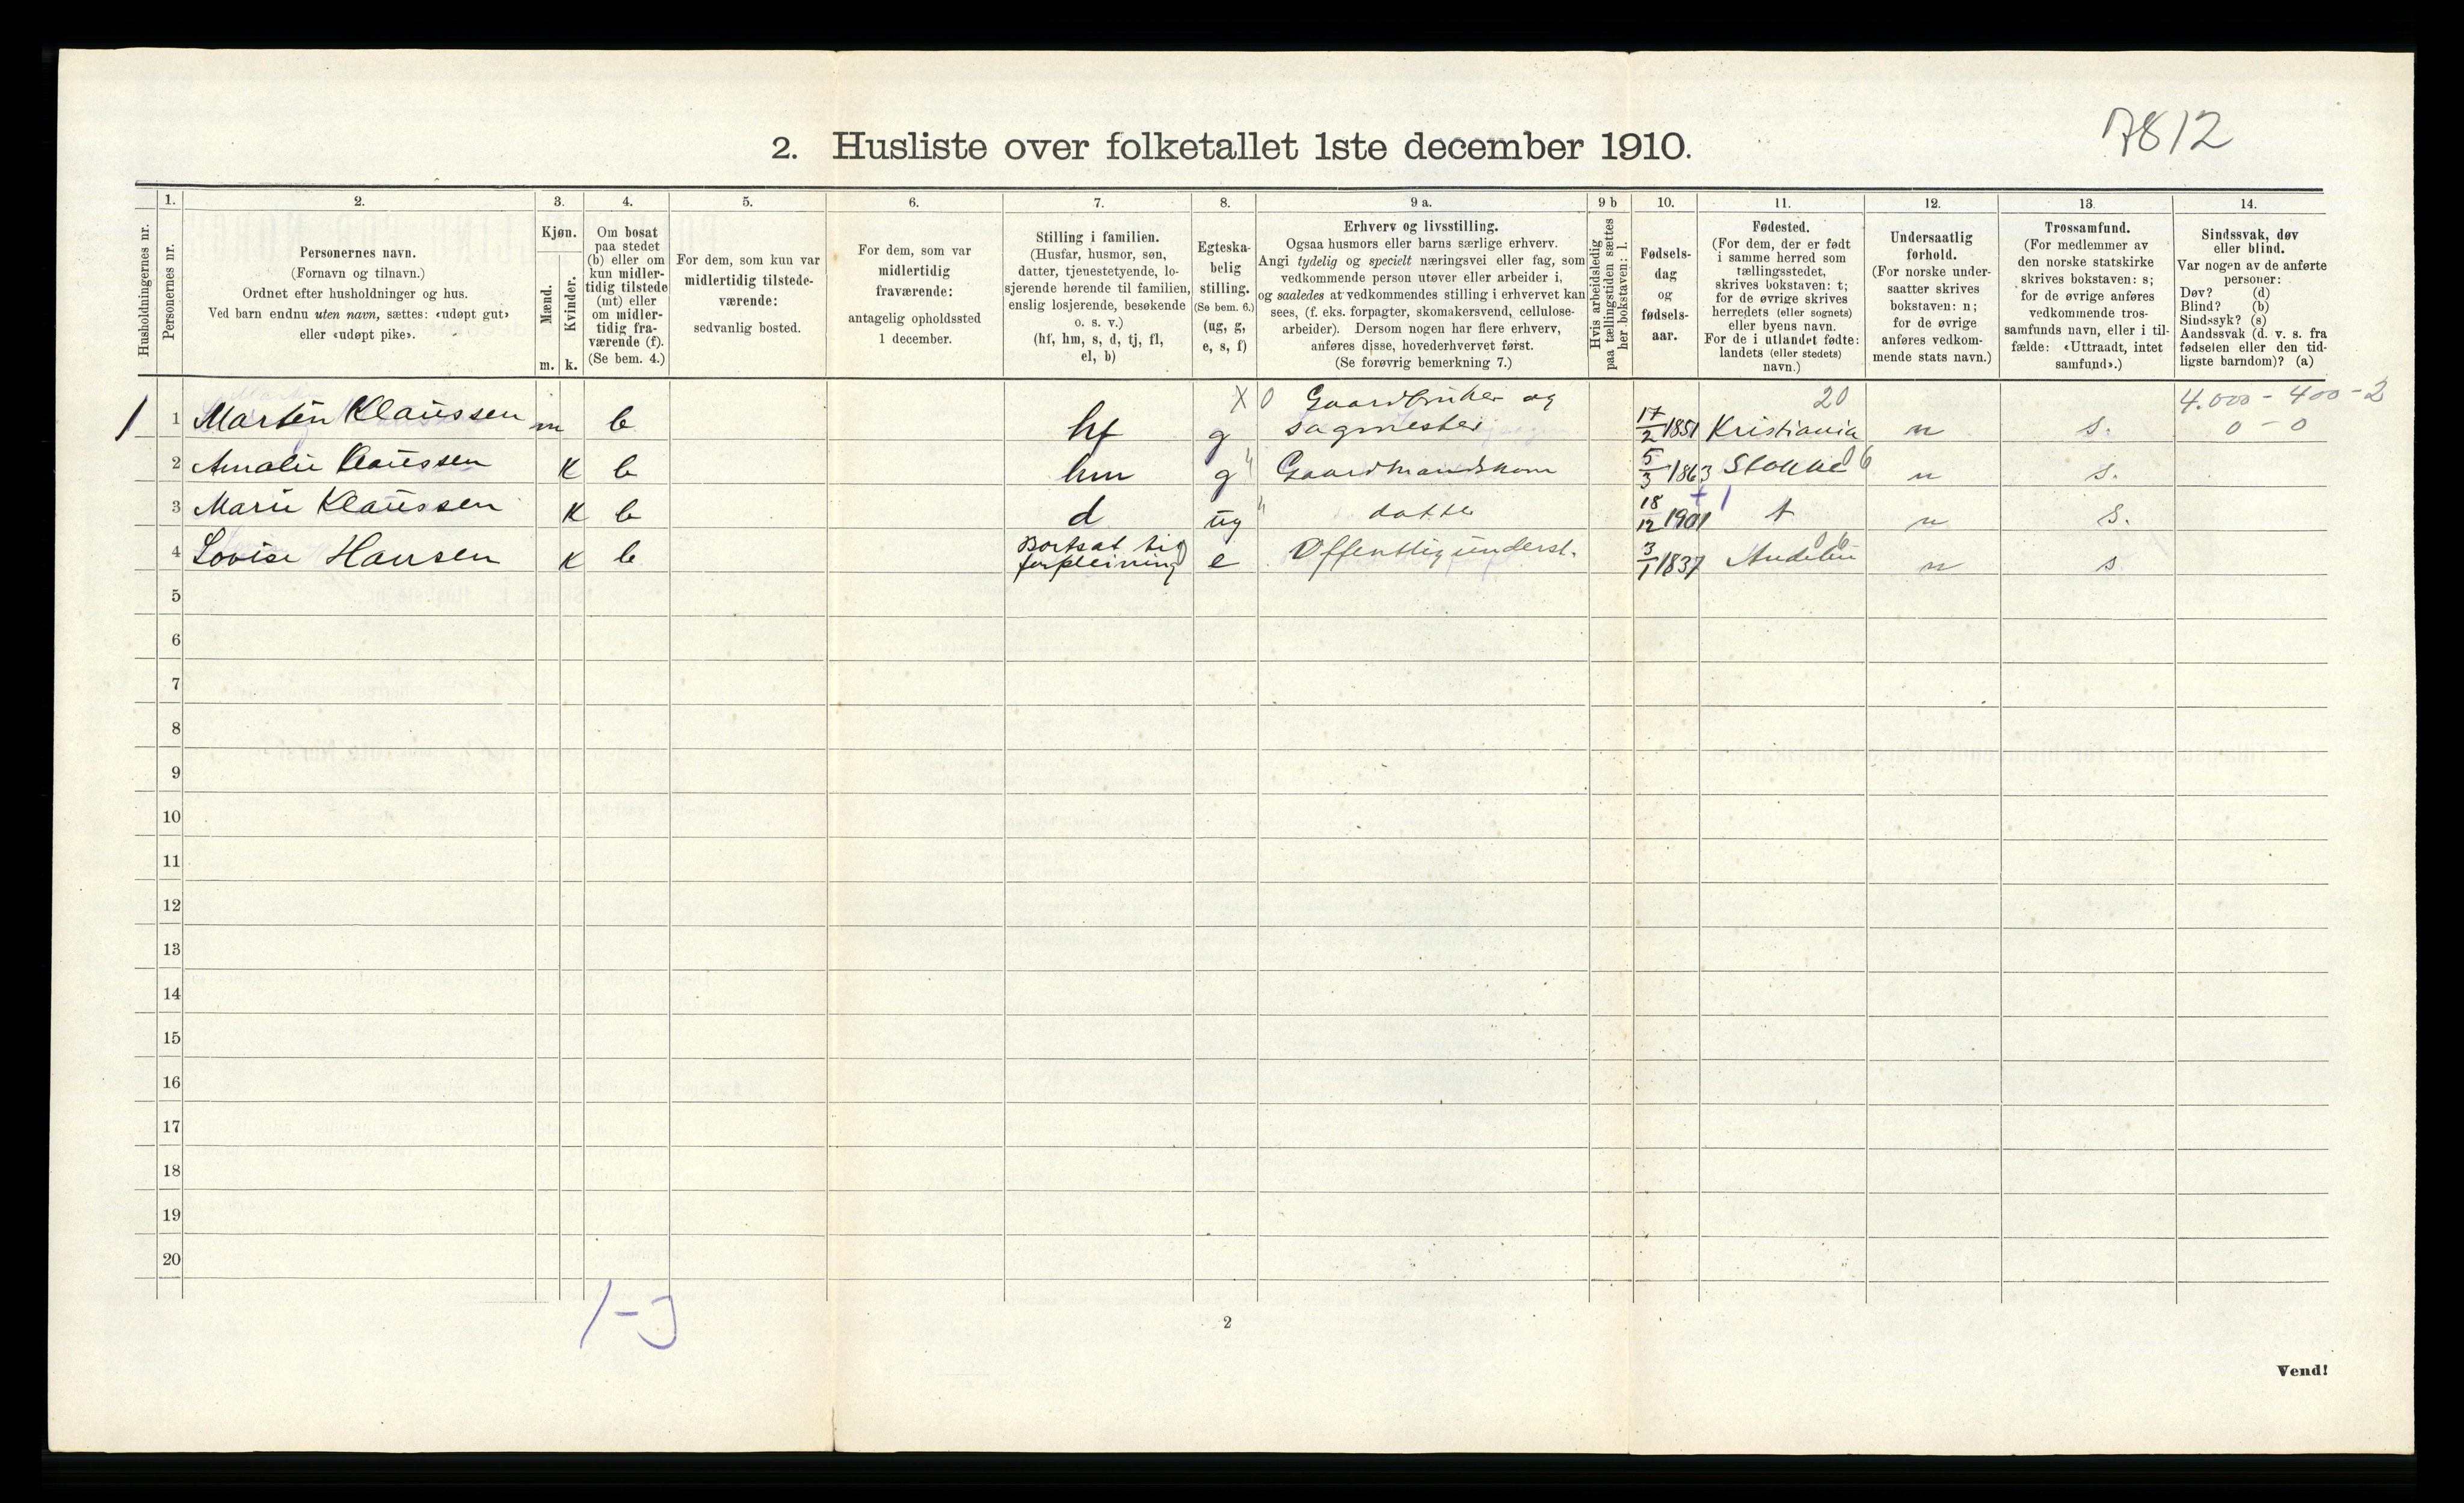 7812
2. Husliste over folketallet 1ste december 1910.
Husholdningernes nr.
1.
Personernes nr.
2.
Personernes navn.
(Fornavn og tilnavn.)
Ordnet efter husholdninger og hus.
Ved barn endnu uten navn, sættes: «udøpt gut»
eller «udøpt pike».
3.
Kjøn.
Mænd.
m.
Kvinder.
k.
4.
Om bosat
paa stedet
(b) eller om
kun midler-
tidig tilstede
(mt) eller
om midler-
tidig fra-
værende (f).
(Se bem. 4.)
5.
For dem, som kun var
midlertidig tilstede-
værende:
sedvanlig bosted.
6.
For dem, som var
midlertidig
fraværende:
antagelig opholdssted
1 december.
7.
Stilling i familien.
(Husfar, husmor, søn,
datter, tjenestetyende, lo-
sjerende hørende til familien,
enslig losjerende, besøkende
o. s. v.)
(hf, hm, s, d, tj, fl,
el, b)
8.
Egteska-
belig
stilling.
(Se bem. 6.)
(ug, g,
e, s, f)
9 a.
Erhverv og livsstilling.
Ogsaa husmors eller barns særlige erhverv.
Angi tydelig og specielt næringsvei eller fag, som
vedkommende person utøver eller arbeider i,
og saaledes at vedkommendes stilling i erhvervet kan
sees, (f. eks. forpagter, skomakersvend, cellulose-
arbeider). Dersom nogen har flere erhverv,
anføres disse, hovederhvervet først.
(Se forøvrig bemerkning 7.)
9 b
Hvis arbeidsledig
paa tællingstiden sættes
her bokstaven: l.
10.
Fødsels-
dag
og
fødsels-
aar.
11.
Fødested.
(For dem, der er født
i samme herred som
tællingsstedet,
skrives bokstaven: t;
for de øvrige skrives
herredets (eller sognets)
eller byens navn.
For de i utlandet fødte:
landets (eller stedets)
navn.)
12.
Undersaatlig
forhold.
(For norske under-
saatter skrives
bokstaven: n;
for de øvrige
anføres vedkom-
mende stats navn.)
13.
Trossamfund.
(For medlemmer av
den norske statskirke
skrives bokstaven: s;
for de øvrige anføres
vedkommende tros-
samfunds navn, eller i til-
fælde: «Uttraadt, intet
samfund».)
14.
Sindssvak, døv
eller blind.
Var nogen av de anførte
personer:
Døv? (d)
Blind? (b)
Sindssyk? (s)
Aandssvak (d. v. s. fra
fødselen eller den tid-
ligste barndom)? (a)
X 0 Gaardbruker og 20 4.000 - 400 - 2
1 1 Martin Klaussen m b hf g sagmester 17/2 1851 Kristiania n s. 0 - 0
2 Amalie Klaussen K b hm g " Gaardmandskone 5/3 1863 Stokke 06 n s.
+ 1
3 Marie Klaussen K b d ug " datter 18/12 1901 t n s.
Bortsat til 06
4 Lovise Hansen K b forpleining e Offentlig underst. 3/1 1837 Andebu n s
5
6
7
8
9
10
11
12
13
14
15
16
17
18
19
20
1-3
2
Vend!